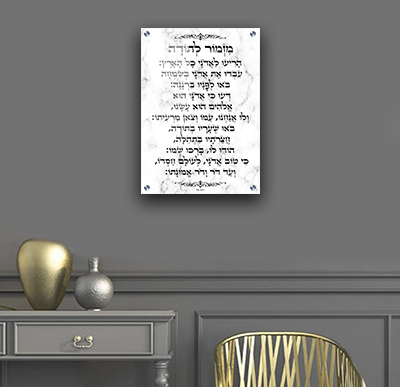 מִזְמוֹר לְתוֹדָה
הָרִיעוּ לַאדֹנָי כָּל הָאָרֶץ:
עִבְדוּ אֶת אֲדֹנָי בְּשִׂמְחָה
בֹּאוּ לְפָנָיו בִּרְנָנָה:
דְּעוּ כִּי אֲדֹנָי הוּא
אֱלֹהִים הוּא עָשָׂנוּ,
וְלוֹ אֲנַחְנוּ, עַמּוֹ וְצֹאן מַרְעִיתוֹ:
בֹּאוּ שְׁעָרָיו בְּתוֹדָה,
חֲצֵרֹתָיו בִּתְהִלָּה,
הוֹדוּ לוֹ, בָּרְכוּ שְׁמוֹ:
כִּי טוֹב אֲדֹנָי, לְעוֹלָם חַסְדּוֹ,
וְעַד דֹּר וָדֹר אֱמוּנָתוֹ: